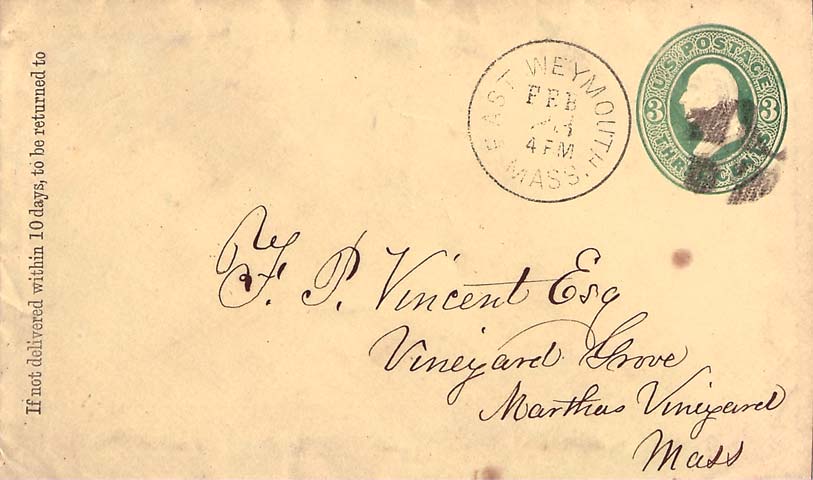 If not delivered within 10 days, to be returned to
EAST WEYMOUTH
FEB
4 PM
MASS.
U.S. POSTAGE
3 3
THREE CENTS
F. P. Vincent Esq
Vineyard Grove
Marthas Vineyard
Mass